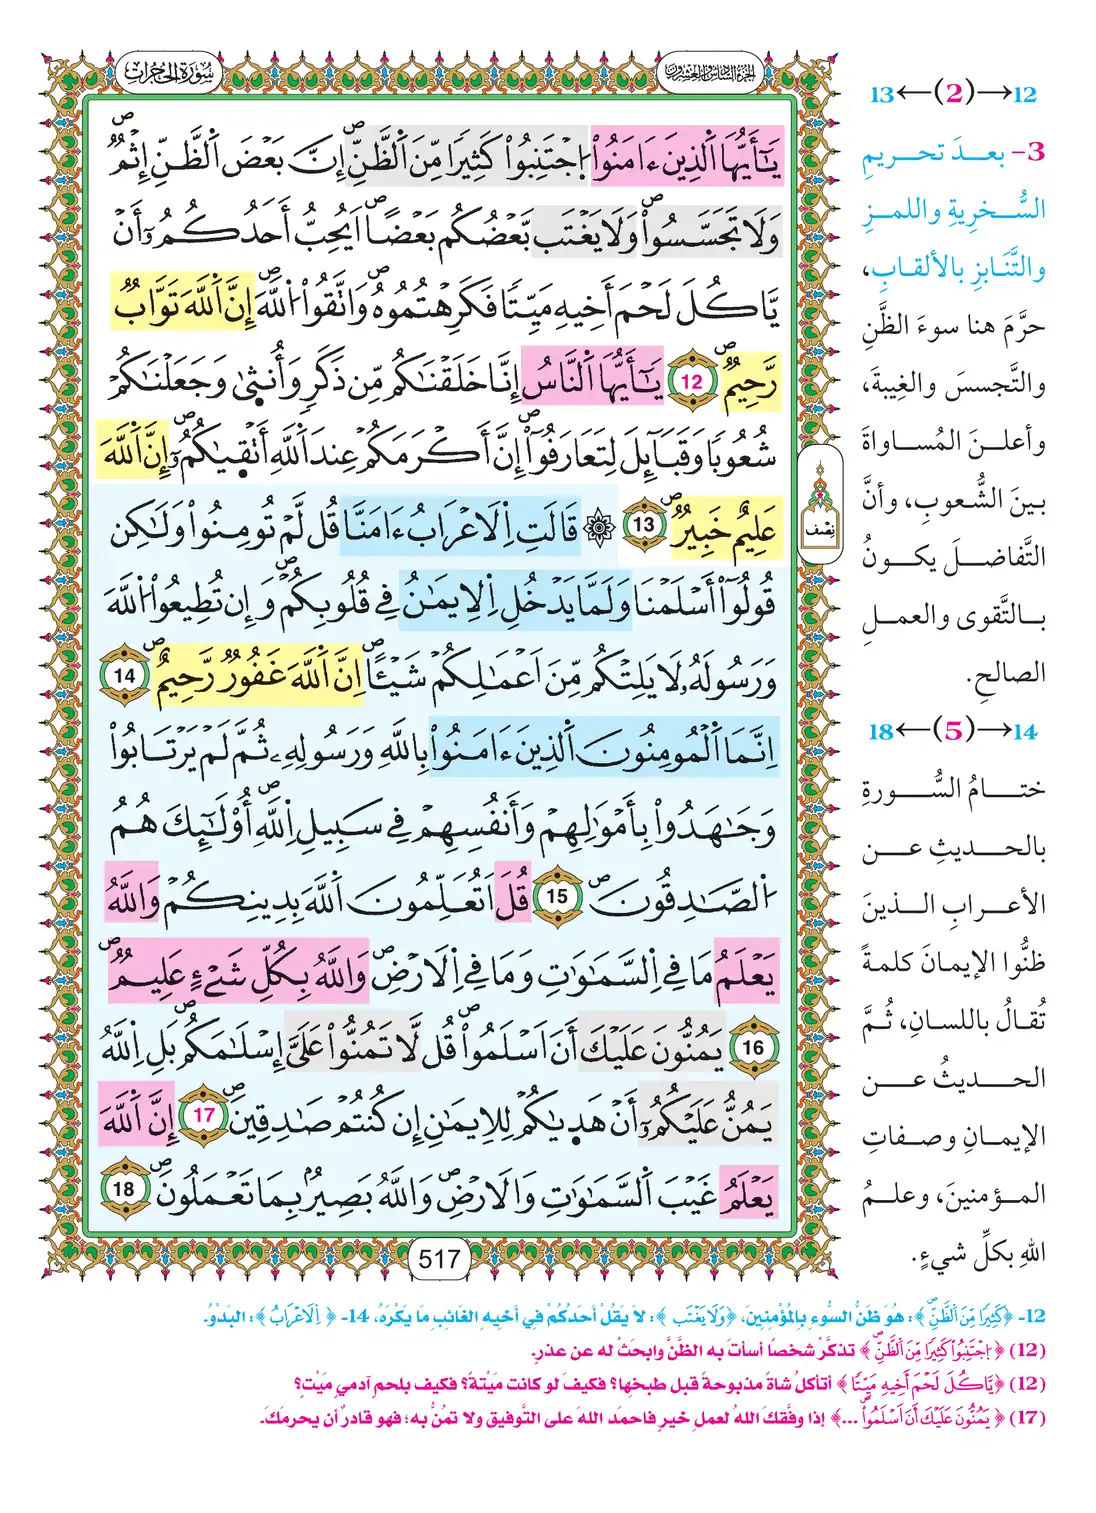 سُورَةُ الحُجرات
الجزء السادس والعشرون
يَٰٓأَيُّهَا اَ۬لذِينَ ءَامَنُواْ اُ۪جْتَنِبُواْ كَثِيراٗ مِّنَ اَ۬لظَّنِّۖ إِنَّ بَعْضَ اَ۬لظَّنِّ إِثْمٞۖ
وَلَا تَجَسَّسُواْۖ وَلَا يَغْتَب بَّعْضُكُم بَعْضاًۖ اَيُحِبُّ أَحَدُكُمُۥٓ أَنْ
يَّاكُلَ لَحْمَ أَخِيهِ مَيِّتاٗ فَكَرِهْتُمُوهُۖ وَاتَّقُواْ اُ۬للَّهَۖ إِنَّ اَ۬للَّهَ تَوَّابٞ
رَّحِيمٞۖ 12 يَٰٓأَيُّهَا اَ۬لنَّاسُ إِنَّا خَلَقْنَٰكُم مِّن ذَكَرٖ وَأُنث۪ىٰ وَجَعَلْنَٰكُمْ
شُعُوباٗ وَقَبَآئِلَ لِتَعَارَفُوٓاْۖ إِنَّ أَكْرَمَكُمْ عِندَ اَ۬للَّهِ أَتْق۪يٰكُمُۥٓۖ إِنَّ اَ۬للَّهَ
عَلِيمٌ خَبِيرٞۖ 13 ۞ قَالَتِ اِ۬لَاعْرَابُ ءَامَنَّا قُل لَّمْ تُومِنُواْ وَلَٰكِن
قُولُوٓاْ أَسْلَمْنَا وَلَمَّا يَدْخُلِ اِ۬لِايمَٰنُ فِي قُلُوبِكُمْۖ وَإِن تُطِيعُواْ اُ۬للَّهَ
وَرَسُولَهُۥ لَا يَلِتْكُم مِّنَ اَعْمَٰلِكُمْ شَيْـٔاًۖ إِنَّ اَ۬للَّهَ غَفُورٞ رَّحِيمٞۖ 14
اِنَّمَا اَ۬لْمُومِنُونَ اَ۬لذِينَ ءَامَنُواْ بِاللَّهِ وَرَسُولِهِۦ ثُمَّ لَمْ يَرْتَابُواْ
وَجَٰهَدُواْ بِأَمْوَٰلِهِمْ وَأَنفُسِهِمْ فِي سَبِيلِ اِ۬للَّهِۖ أُوْلَٰٓئِكَ هُمُ
اُ۬لصَّٰدِقُونَۖ 15 قُلَ اَتُعَلِّمُونَ اَ۬للَّهَ بِدِينِكُمْ وَاللَّهُ
يَعْلَمُ مَا فِي اِ۬لسَّمَٰوَٰتِ وَمَا فِي اِ۬لَارْضِۖ وَاللَّهُ بِكُلِّ شَےْءٍ عَلِيمٞۖ
16 يَمُنُّونَ عَلَيْكَ أَنَ اَسْلَمُواْۖ قُل لَّا تَمُنُّواْ عَلَيَّ إِسْلَٰمَكُمۖ بَلِ اِ۬للَّهُ
يَمُنُّ عَلَيْكُمُۥٓ أَنْ هَد۪يٰكُمْ لِلِايمَٰنِ إِن كُنتُمْ صَٰدِقِينَۖ 17 إِنَّ اَ۬للَّهَ
يَعْلَمُ غَيْبَ اَ۬لسَّمَٰوَٰتِ وَالَارْضِۖ وَاللَّهُ بَصِيرُۢ بِمَا تَعْمَلُونَۖ 18
نِصْف
517
12←(2)→13
3- بعدَ تحريمِ
السُّخرِيةِ واللمزِ
والتَّنَابزِ بالألقابِ،
حرَّمَ هنا سوءَ الظَّنِ
والتَّجسسَ والغِيبةَ،
وأعلنَ المُساواةَ
بينَ الشُّعوبِ، وأنَّ
التَّفاضلَ يكونُ
بالتَّقوى والعملِ
الصالحِ.
14←(5)→18
ختامُ السُّورةِ
بالحديثِ عن
الأعرابِ الذينَ
ظنُّوا الإيمانَ كلمةً
تُقالُ باللسانِ، ثُمَّ
الحديثُ عن
الإيمانِ وصفاتِ
المؤمنينَ، وعلمُ
اللهِ بكلِّ شيءٍ.
12- ﴿كَثِيراٗ مِّنَ اَ۬لظَّنِّۖ﴾: هُوَ ظَنُّ السُّوءِ بِالمُؤْمِنِينَ، ﴿وَلَا يَغْتَب﴾: لاَ يَقُلْ أَحَدُكُمْ فِي أَخِيهِ الغَائِبِ مَا يَكْرَهُ، 14- ﴿اِ۬لَاعْرَابُ﴾: البَدْوُ.
(12) ﴿اُ۪جْتَنِبُواْ كَثِيراٗ مِّنَ اَ۬لظَّنِّۖ﴾ تذكَّرْ شخصًا أسأتَ به الظَّنَّ وابحثْ له عن عذرٍ.
(12) ﴿يَّاكُلَ لَحْمَ أَخِيهِ مَيِّتاٗ﴾ أتأكلُ شاةً مذبوحةً قبل طبخِها؟ فكيفَ لو كانت مَيْتةً؟ فكيف بلحمِ آدميٍ مَيْتٍ؟
(17) ﴿يَمُنُّونَ عَلَيْكَ أَنَ اَسْلَمُواْۖ ...﴾ إذا وفَّقكَ اللهُ لعملِ خيرٍ فاحمَد اللهَ على التَّوفيقِ ولا تمُنَّ به؛ فهو قادرٌ أن يحرمَكَ.